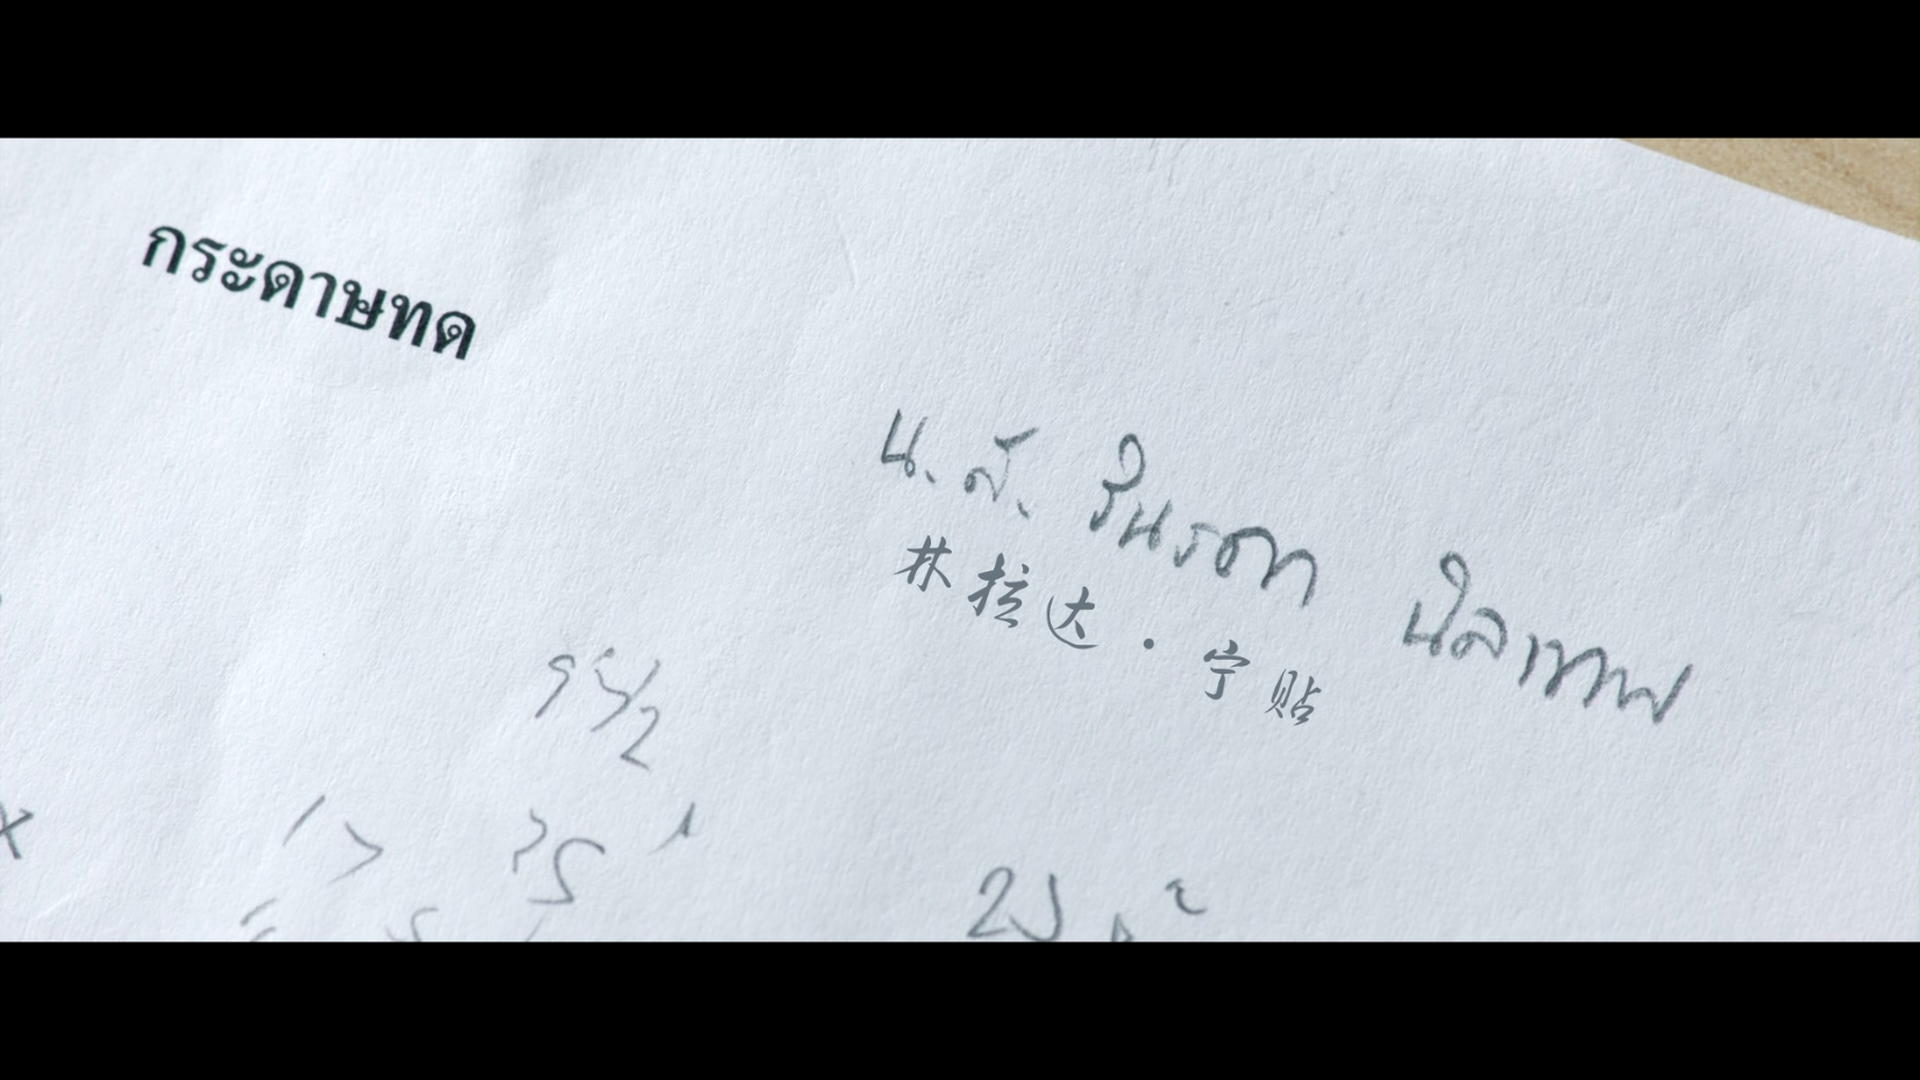 กระดาษทด
น.ส. รินรดา นิลเทพ
林拉达·宁贴
95/2